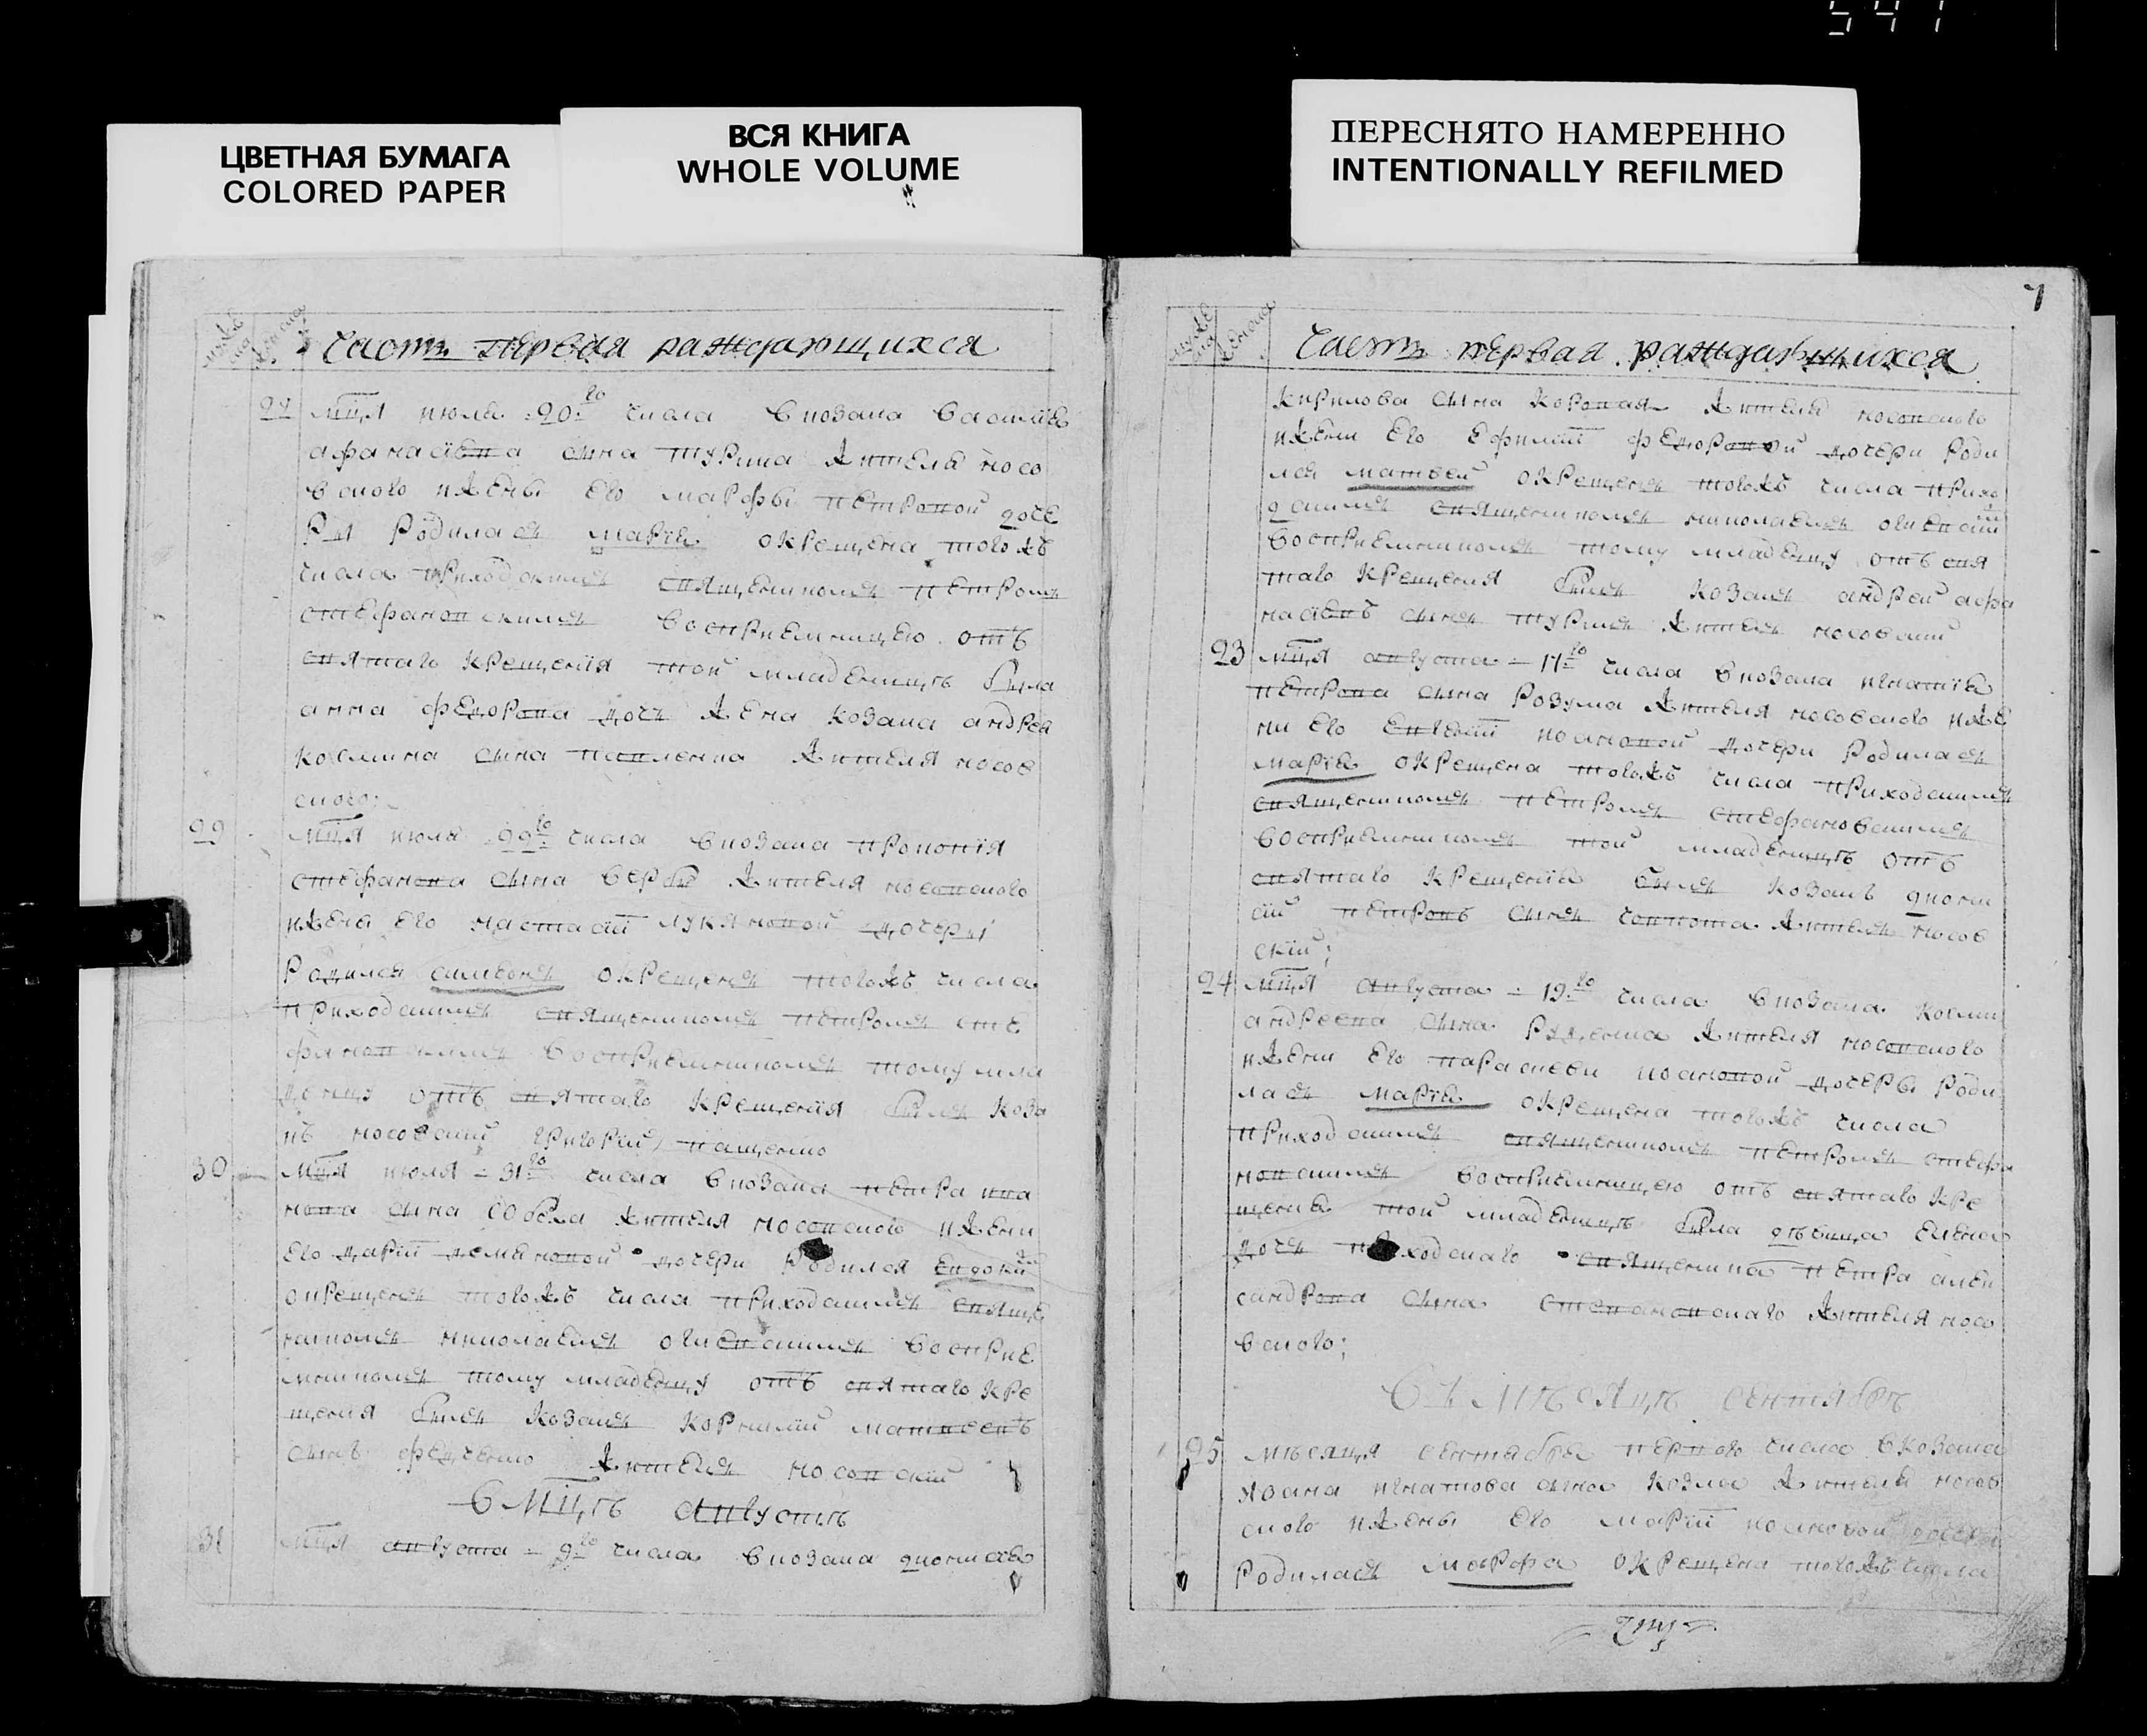 541
ЦВЕТНАЯ БУМАГА
COLORED PAPER
ВСЯ КНИГА
WHOLE VOLUME
ПЕРЕСНЯТО НАМЕРЕННО
INTENTIONALLY REFILMED
7
Часть первая раждающихся
22 мц̃я июля 20го числа в козака василїѧ
афанасїева сына турика жителѧ носо
вского и жены его марфы петровой доче
ры родилась марїѧ окрещена того жъ
числа приходскимъ священникомъ петромъ
стефановскимъ восприемницею отъ
святаго крещенїя той младеницѣ была
анна федорова дочь жена козака андрея
козмина сына павленка жителя носов
ского;
29 мц̃я июля 29го числа в козака прокопїя
стефанова сына вербы жителя носовского
и жены его настасїи лукяновой дочеры
родился симеонъ окрещенъ того жъ числа
приходскимъ священникомъ петромъ сте
фановскимъ восприемникомъ тому мла
денцу отъ святаго крещенїя былъ коза
къ носовский григорїй пащенко
30 мц̃я июля 31го числа в козака петра ива
нова сына жителя носовского и жены
его дарїи демяновой дочери родился евдоким
окрещенъ того жъ числа приходскимъ свяще
нникомъ николаемъ огиевскимъ восприе
мникомъ тому младенцу отъ святаго кре
щения былъ козакъ корнилїй матвеевъ
сынъ федченко житель носовскїй
в мц̃ѣ августѣ
31 мц̃я августа 9го числа в козака
кирилова сына коропая жителя носовского
и жены его ефимїи федоровой дочери роди
лся матвей окрещенъ того жъ числа прихо
дскимъ священникомъ николаемъ огиевским
восприемникомъ тому младенцу отъ свя
таго крещения былъ козакъ андрей афа
насїевъ сынъ турикъ житель носовский
23 мц̃я августа 17го числа в козака игнатїѧ
петрова сына розума жителя носовского и же
ни его евгении ивановой дочери родилась
марїѧ окрещена того жъ числа приходскимъ
священникомъ петромъ стефановскимъ
восприемникомъ той младеницѣ отъ
святаго крещенїѧ былъ козакъ
петровъ сынъ житель носов
скїй;
24 мц̃я августа 19го числа в козака козми
андреева сына руденка жителя носовского
и жени его параскеви ивановой дочеры роди
лась марїѧ окрещена того жъ числа
приходскимъ священникомъ петромъ стефа
новскимъ восприемницею отъ святаго кре
щения той младеницѣ была дѣвица елена
дочь приходскаго священника петра алек
сандрова сына стефановскаго жителя носо
вского;
въ мѣсяцѣ сентябрѣ
25 мѣсяця сентября первого числа в козака
ивана игнатова сына козла жителя носов
ского и жены его марїи ивановой дочери
родилась марфа окрещена того жъ числа